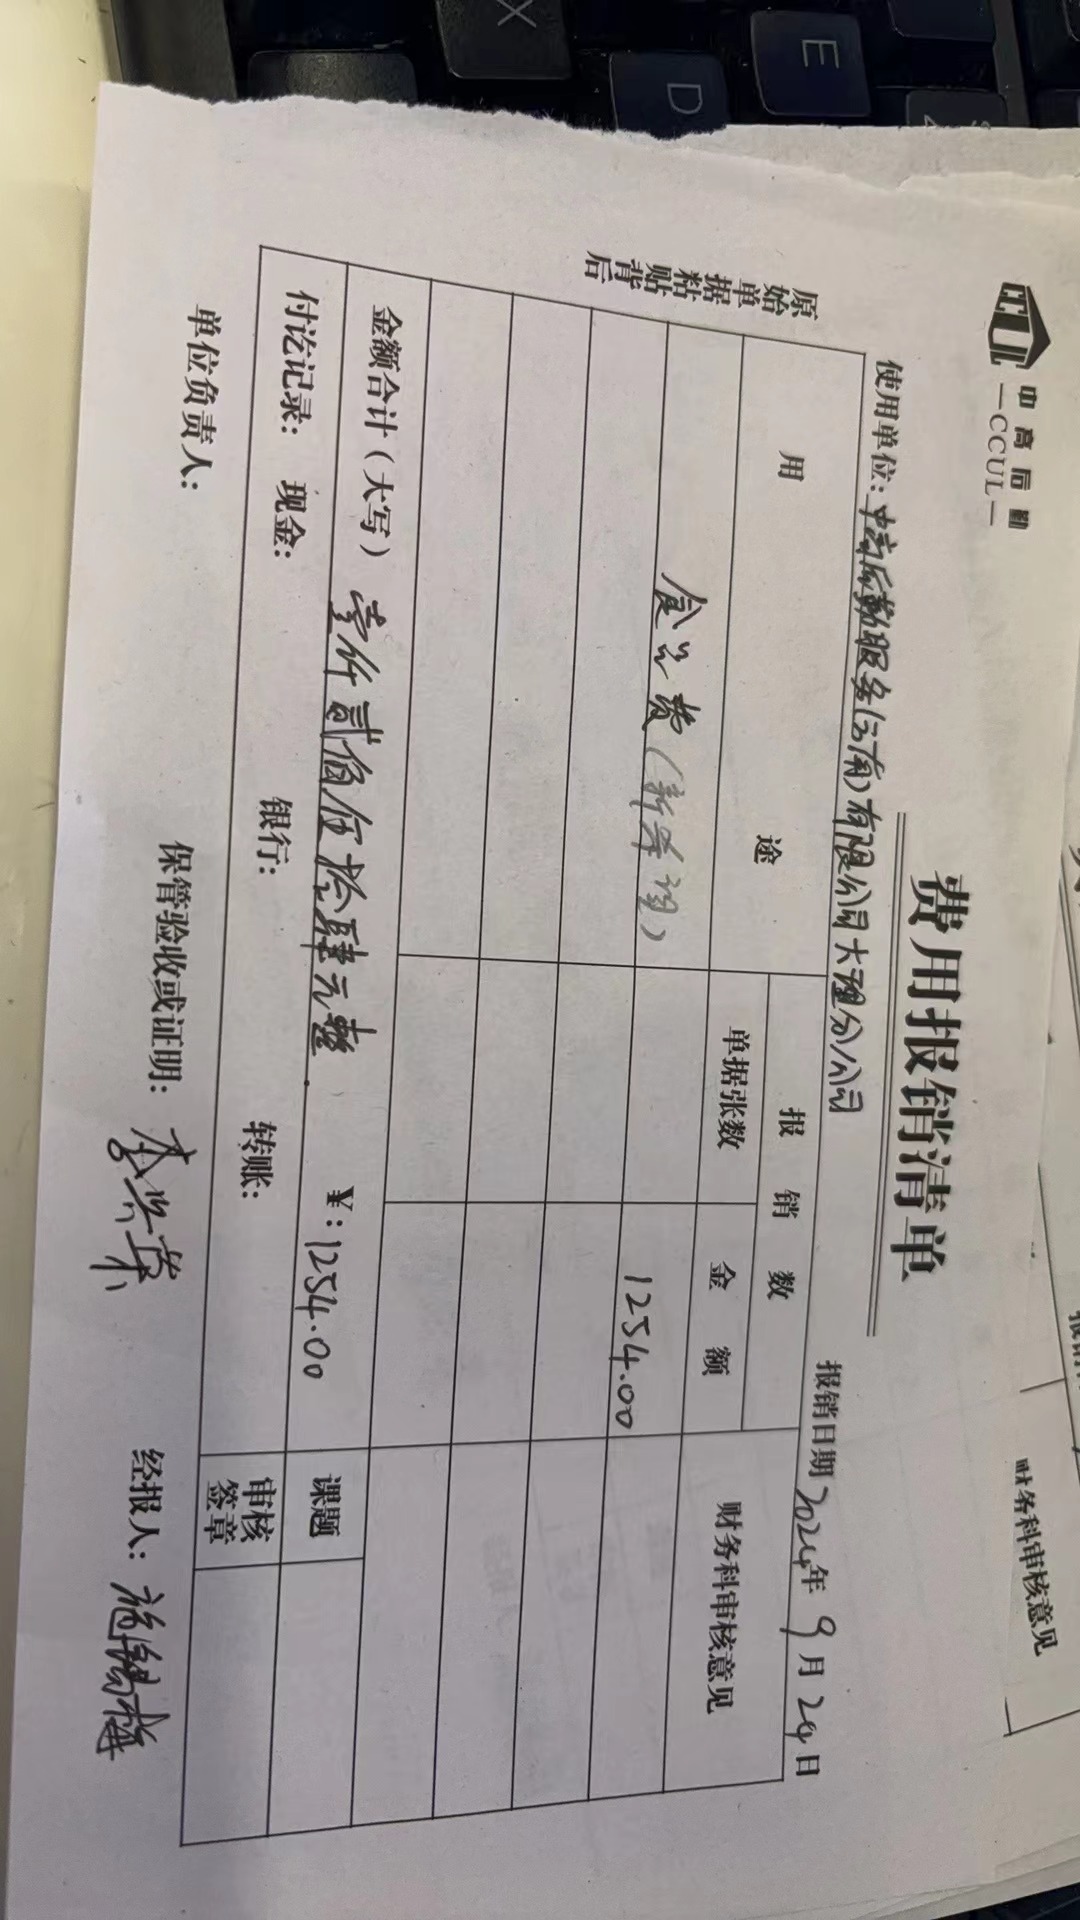 中高后勤
—CCUL—
费用报销清单
使用单位：中高后勤服务(云南)有限公司大理分公司
报销日期 2024年 9月 29日
原始单据粘贴背后
用 途
报 销 数
单据张数
金 额
财务科审核意见
食品费（新希望）
1254.00
金额合计（大写）壹仟贰佰伍拾肆元整
￥：1254.00
课题
付讫记录： 现金： 银行： 转账：
审核签章
单位负责人：
保管验收或证明：
经报人：
财务科审核意见
X
D
E